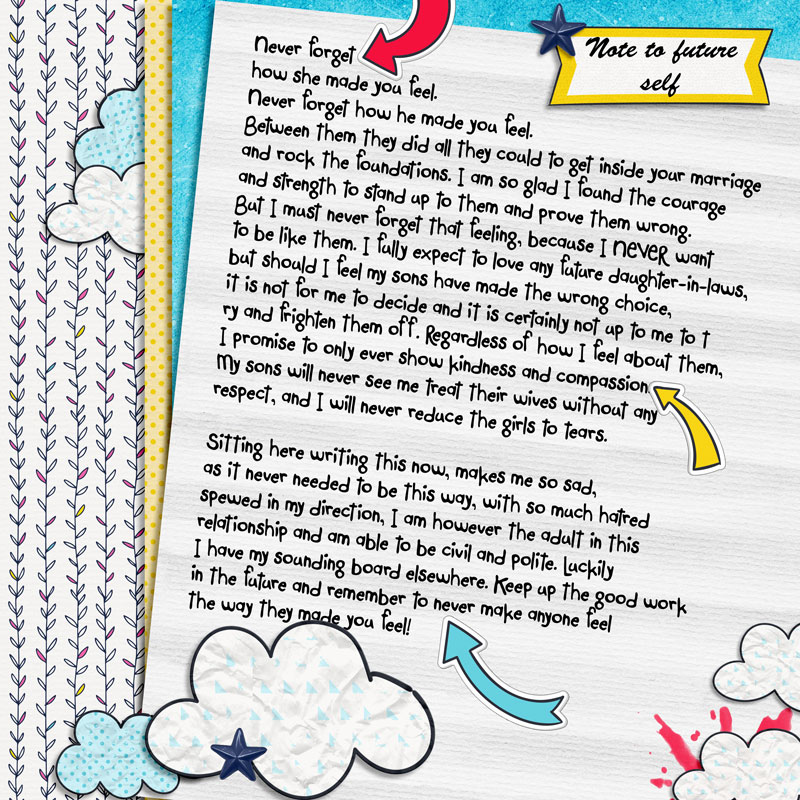 Note to future
self
Never forget
how she made you feel.
Never forget how he made you feel.
Between them they did all they could to get inside your marriage
and rock the foundations. I am so glad I found the courage
and strength to stand up to them and prove them wrong.
But I must never forget that feeling, because I NEVER want
to be like them. I fully expect to love any future daughter-in-laws,
but should I feel my sons have made the wrong choice,
it is not for me to decide and it is certainly not up to me to t
ry and frighten them off. Regardless of how I feel about them,
I promise to only ever show kindness and compassion.
My sons will never see me treat their wives without any
respect, and I will never reduce the girls to tears.
Sitting here writing this now, makes me so sad,
as it never needed to be this way, with so much hatred
spewed in my direction, I am however the adult in this
relationship and am able to be civil and polite. Luckily
I have my sounding board elsewhere. Keep up the good work
in the future and remember to never make anyone feel
the way they made you feel!